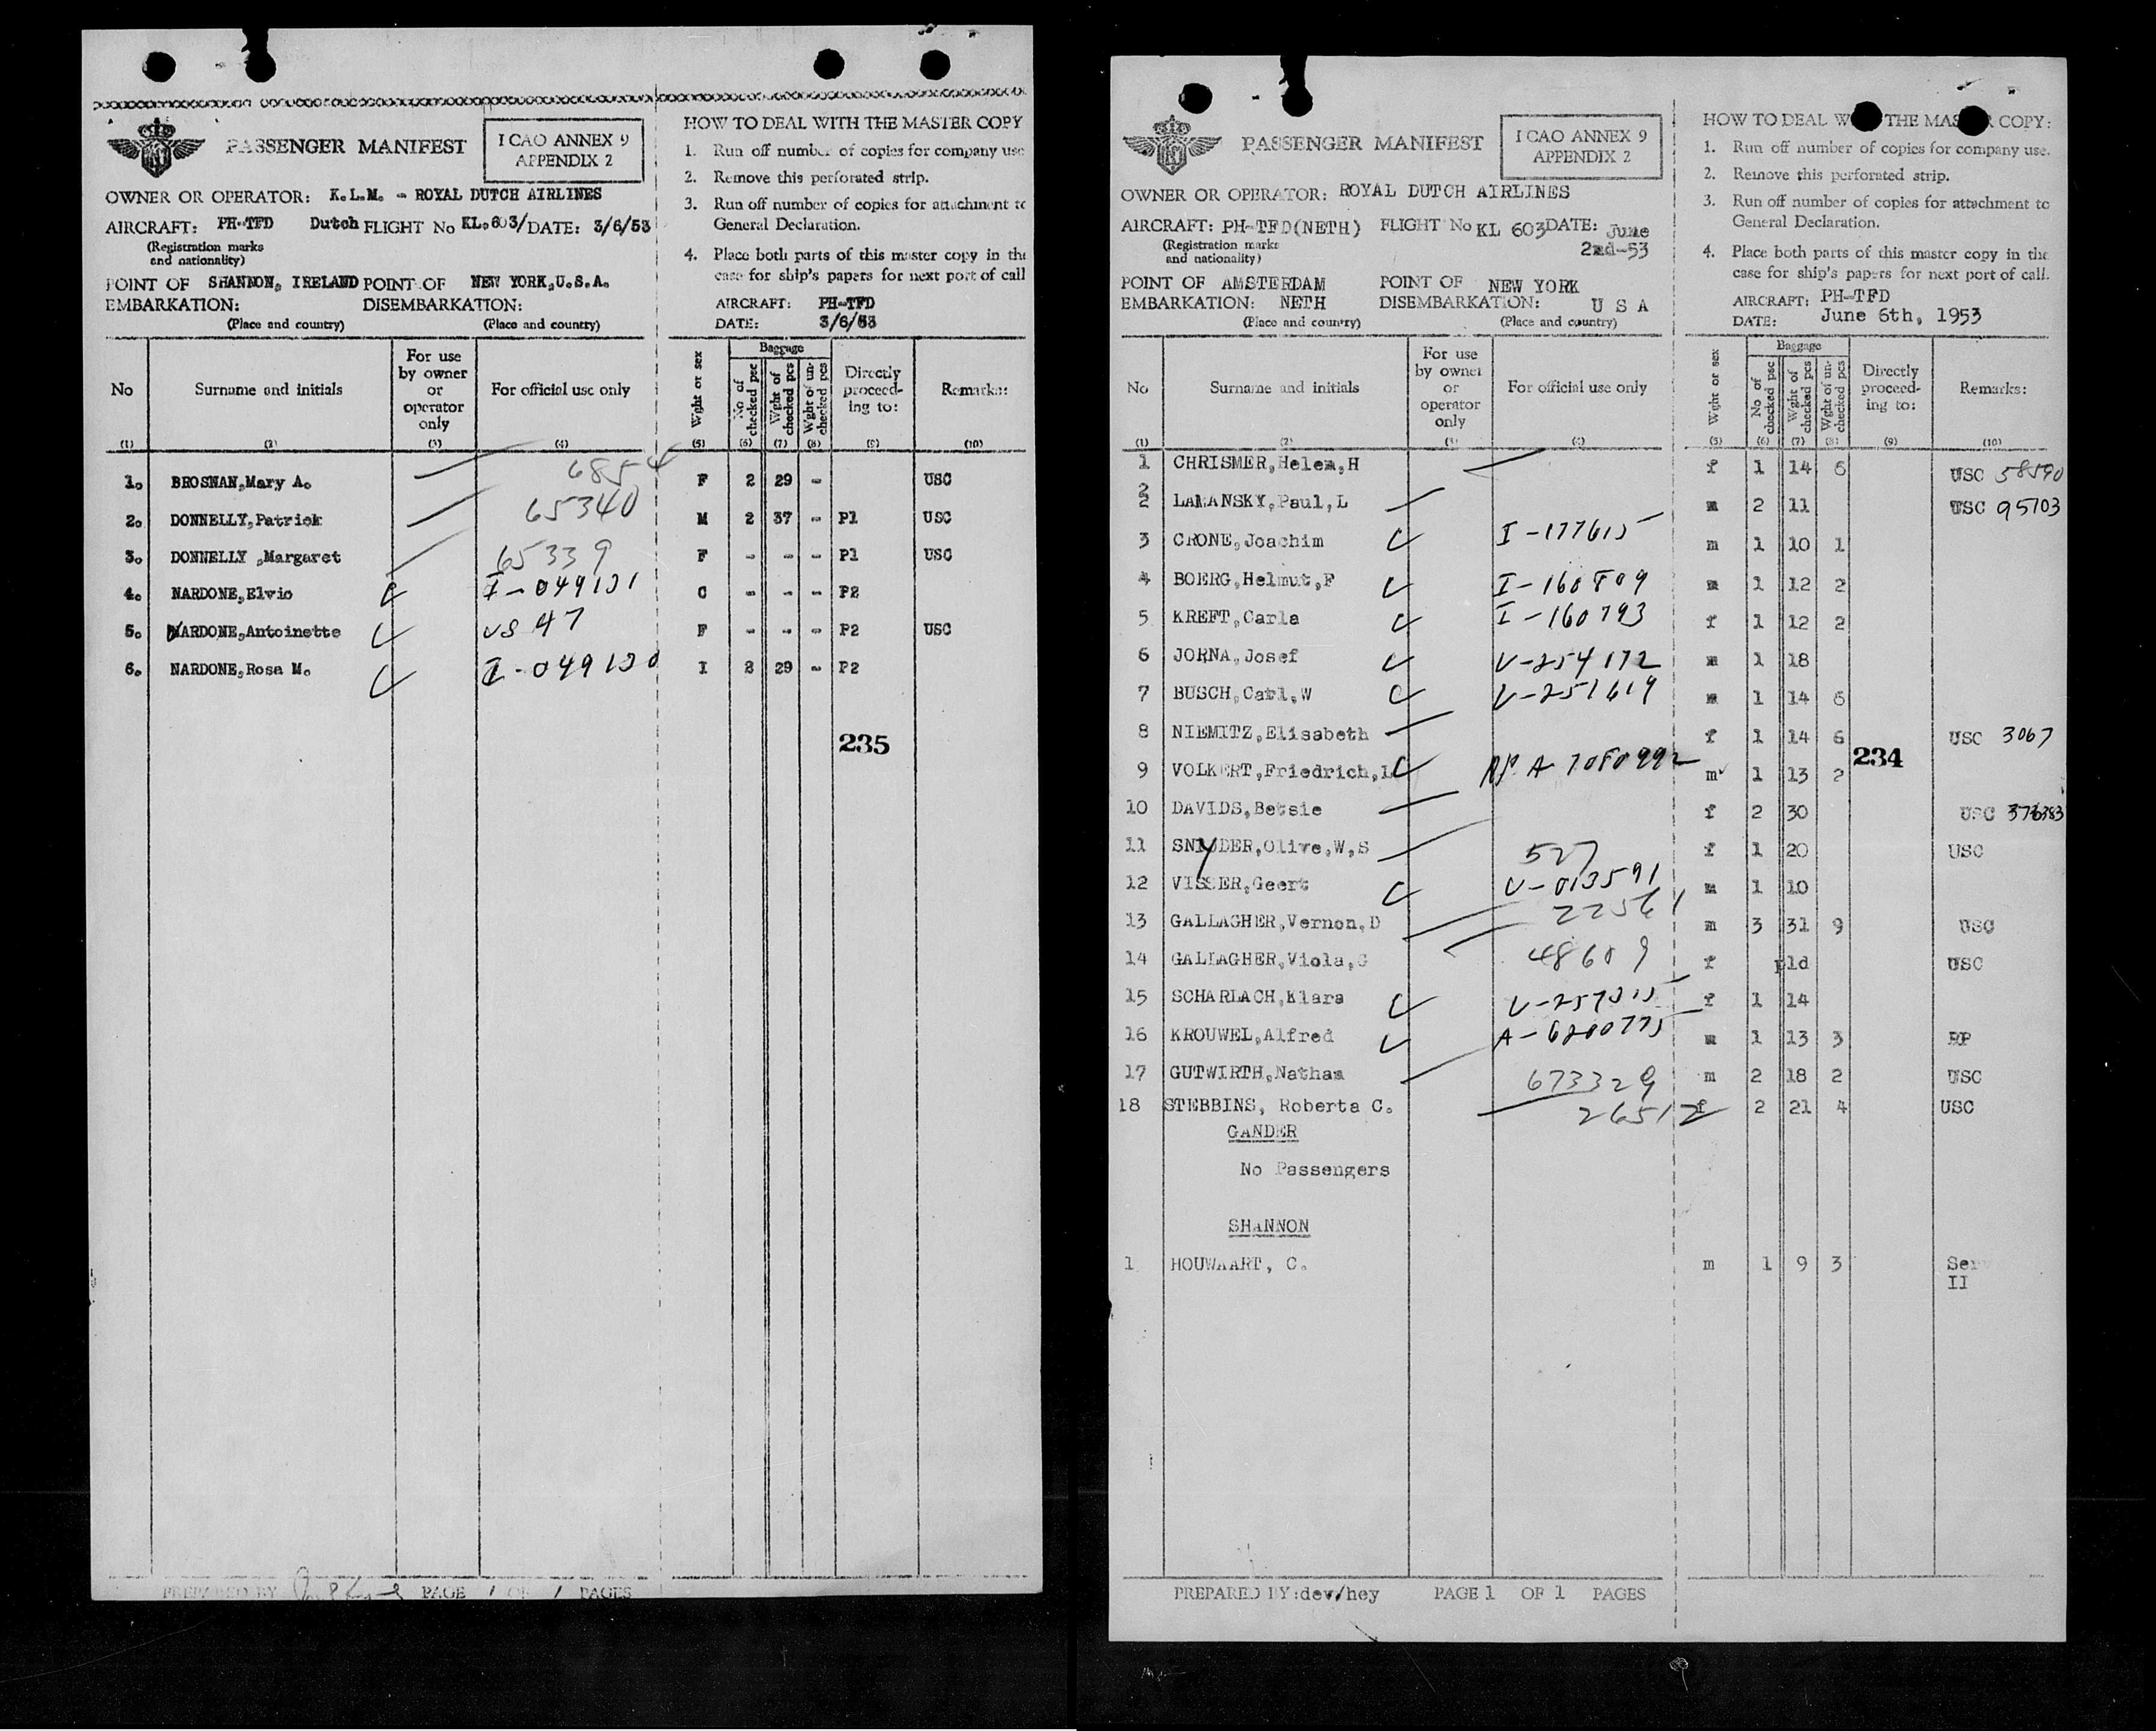 PASSENGER MANIFEST
I CAO ANNEX 9
APPENDIX 2
OWNER OR OPERATOR: K.L.M. - ROYAL DUTCH AIRLINES
AIRCRAFT: PH-TFD Dutch FLIGHT No KL.603/ DATE: 3/6/53
(Registration marks
and nationality)
POINT OF SHANNON, IRELAND POINT OF NEW YORK,U.S.A.
EMBARKATION: DISEMBARKATION:
(Place and country) (Place and country)
HOW TO DEAL WITH THE MASTER COPY
1. Run off number of copies for company use
2. Remove this perforated strip.
3. Run off number of copies for attachment to
General Declaration.
4. Place both parts of this master copy in the
case for ship's papers for next port of call
AIRCRAFT: PH-TFD
DATE: 3/6/53
No Surname and initials For use by owner or operator only For official use only Wght or sex Baggage No of checked psc Wght of checked pcs Wght of un-checked pcs Directly proceed-ing to: Remarks:
(1) (2) (3) (4) (5) (6) (7) (8) (9) (10)
1. BROSNAN,Mary A. 6854 F 2 29 - USC
2. DONNELLY,Patrick 65340 M 2 37 - P1 USC
3. DONNELLY ,Margaret 65339 F - - - P1 USC
4. NARDONE,Elvio I-049131 C - - - P2
5. NARDONE,Antoinette US 47 F - - - P2 USC
6. NARDONE,Rosa M. I-049130 I 2 29 - P2
235
PREPARED BY PAGE 1 OF 1 PAGES
PASSENGER MANIFEST
I CAO ANNEX 9
APPENDIX 2
OWNER OR OPERATOR: ROYAL DUTCH AIRLINES
AIRCRAFT: PH-TFD(NETH) FLIGHT No KL 603 DATE: June
(Registration marks 2nd-53
and nationality)
POINT OF AMSTERDAM POINT OF NEW YORK
EMBARKATION: NETH DISEMBARKATION: U S A
(Place and country) (Place and country)
HOW TO DEAL W THE MAS R COPY:
1. Run off number of copies for company use.
2. Remove this perforated strip.
3. Run off number of copies for attachment to
General Declaration.
4. Place both parts of this master copy in the
case for ship's papers for next port of call.
AIRCRAFT: PH-TFD
DATE: June 6th, 1953
No Surname and initials For use by owner or operator only For official use only Wght or sex Baggage No of checked psc Wght of checked pcs Wght of un-checked pcs Directly proceed-ing to: Remarks:
(1) (2) (3) (4) (5) (6) (7) (8) (9) (10)
1 CHRISMER,Helen,H f 1 14 6 USC 58590
2 LAMANSKY,Paul,L m 2 11 USC 95103
3 CRONE,Joachim I-177615 m 1 10 1
4 BOERG,Helmut,F I-160809 m 1 12 2
5 KREFT,Carla I-160793 f 1 12 2
6 JORNA,Josef V-254172 m 1 18
7 BUSCH,Carl,W V-251619 m 1 14 6
8 NIEMITZ,Elisabeth f 1 14 6 USC 3067
234
9 VOLKERT,Friedrich,L RP A 7080992 m 1 13 2
10 DAVIDS,Betsie f 2 30 USC
11 SNYDER,Olive,W,S 527 f 1 20 USC
12 VISSER,Geert V-013591 m 1 10
13 GALLAGHER,Vernon,D 22561 m 3 31 9 USC
14 GALLAGHER,Viola,G 48609 f pld USC
15 SCHARLACH,Klara V-257315 f 1 14
16 KROUWEL,Alfred A-6200775 m 1 13 3 RP
17 GUTWIRTH,Nathan 673329 m 2 18 2 USC
18 STEBBINS, Roberta C. 26512 f 2 21 4 USC
GANDER
No Passengers
SHANNON
1 HOUWAART, C. m 1 9 3 Ser
II
PREPARED BY:dev/hey PAGE 1 OF 1 PAGES